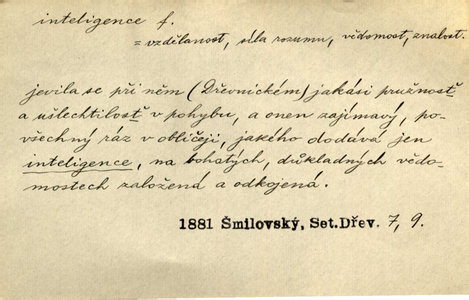 inteligence f.
= vzdělanost, síla rozumu, vědomost, znalost.
jevila se při něm (Dřevnickém) jakási pružnosť
a ušlechtilosť v pohybu, a onen zajímavý, po-
všechný ráz v obličeji, jakého dodává jen
inteligence, na bohatých, důkladných vědo-
mostech založená a odkojená.
1881 Šmilovský, Set.Dřev. 7, 9.